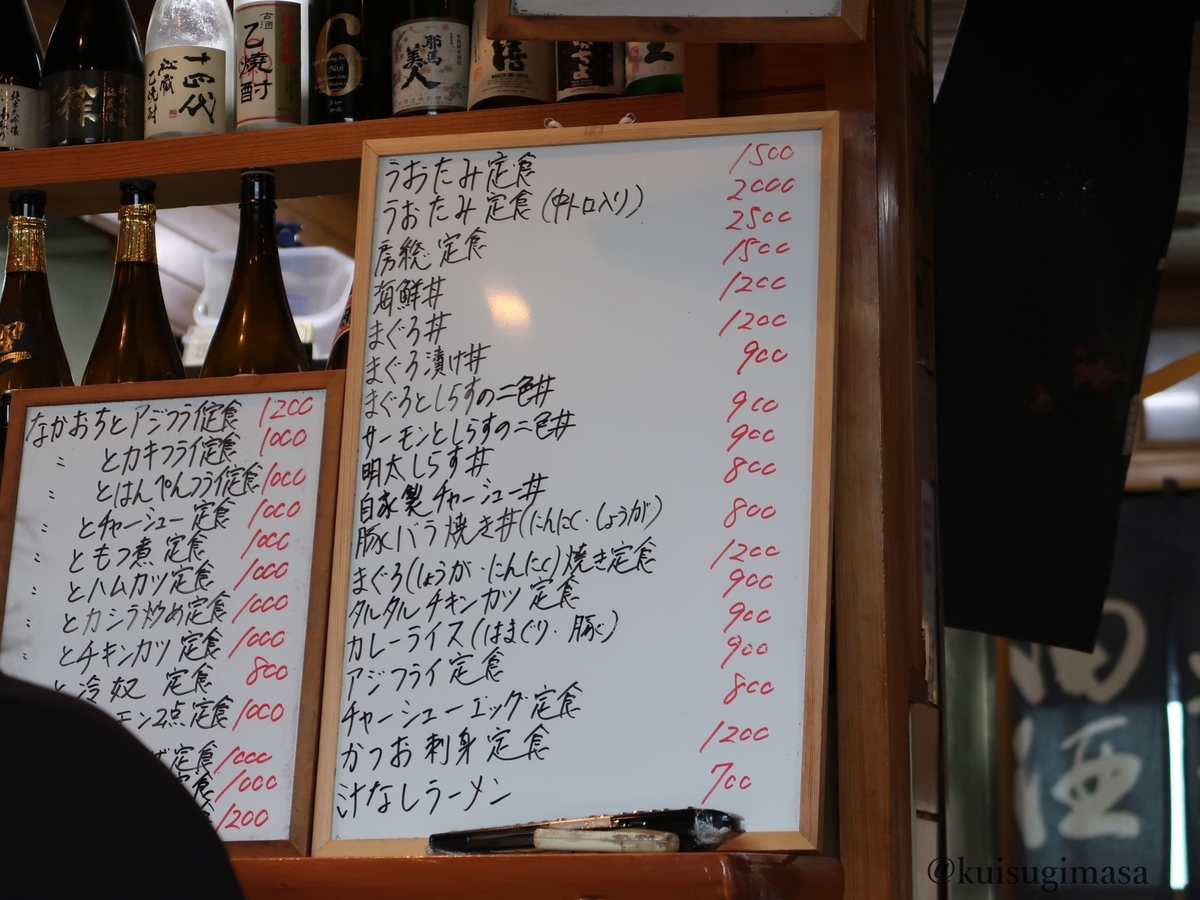 十四代
秘蔵
乙焼酎
古酒
乙焼酎
6
No.6
耶馬
美人
うおたみ定食 1500
うおたみ定食(中トロ入り) 2000
房総定食 2500
海鮮丼 1500
まぐろ丼 1200
まぐろ漬け丼 1200
まぐろとしらすの二色丼 900
サーモンとしらすの二色丼 900
明太しらす丼 900
自家製チャーシュー丼 800
豚バラ焼き丼(にんにく・しょうが) 800
まぐろ(しょうが・にんにく)焼き定食 1200
タルタルチキンカツ定食 900
カレーライス(はまぐり・豚) 900
アジフライ定食 900
チャーシューエッグ定食 800
かつお刺身定食 1200
汁なしラーメン 700
なかおちとアジフライ定食 1200
〃 とカキフライ定食 1000
〃 とはんぺんフライ定食 1000
〃 とチャーシュー定食 1000
〃 ともつ煮定食 1000
〃 とハムカツ定食 1000
〃 とカシラ炒め定食 1000
〃 とチキンカツ定食 1000
と冷奴 定食 800
モン2点定食 1000
定食 1000
定食 1000
1200
酒
@kuisugimasa